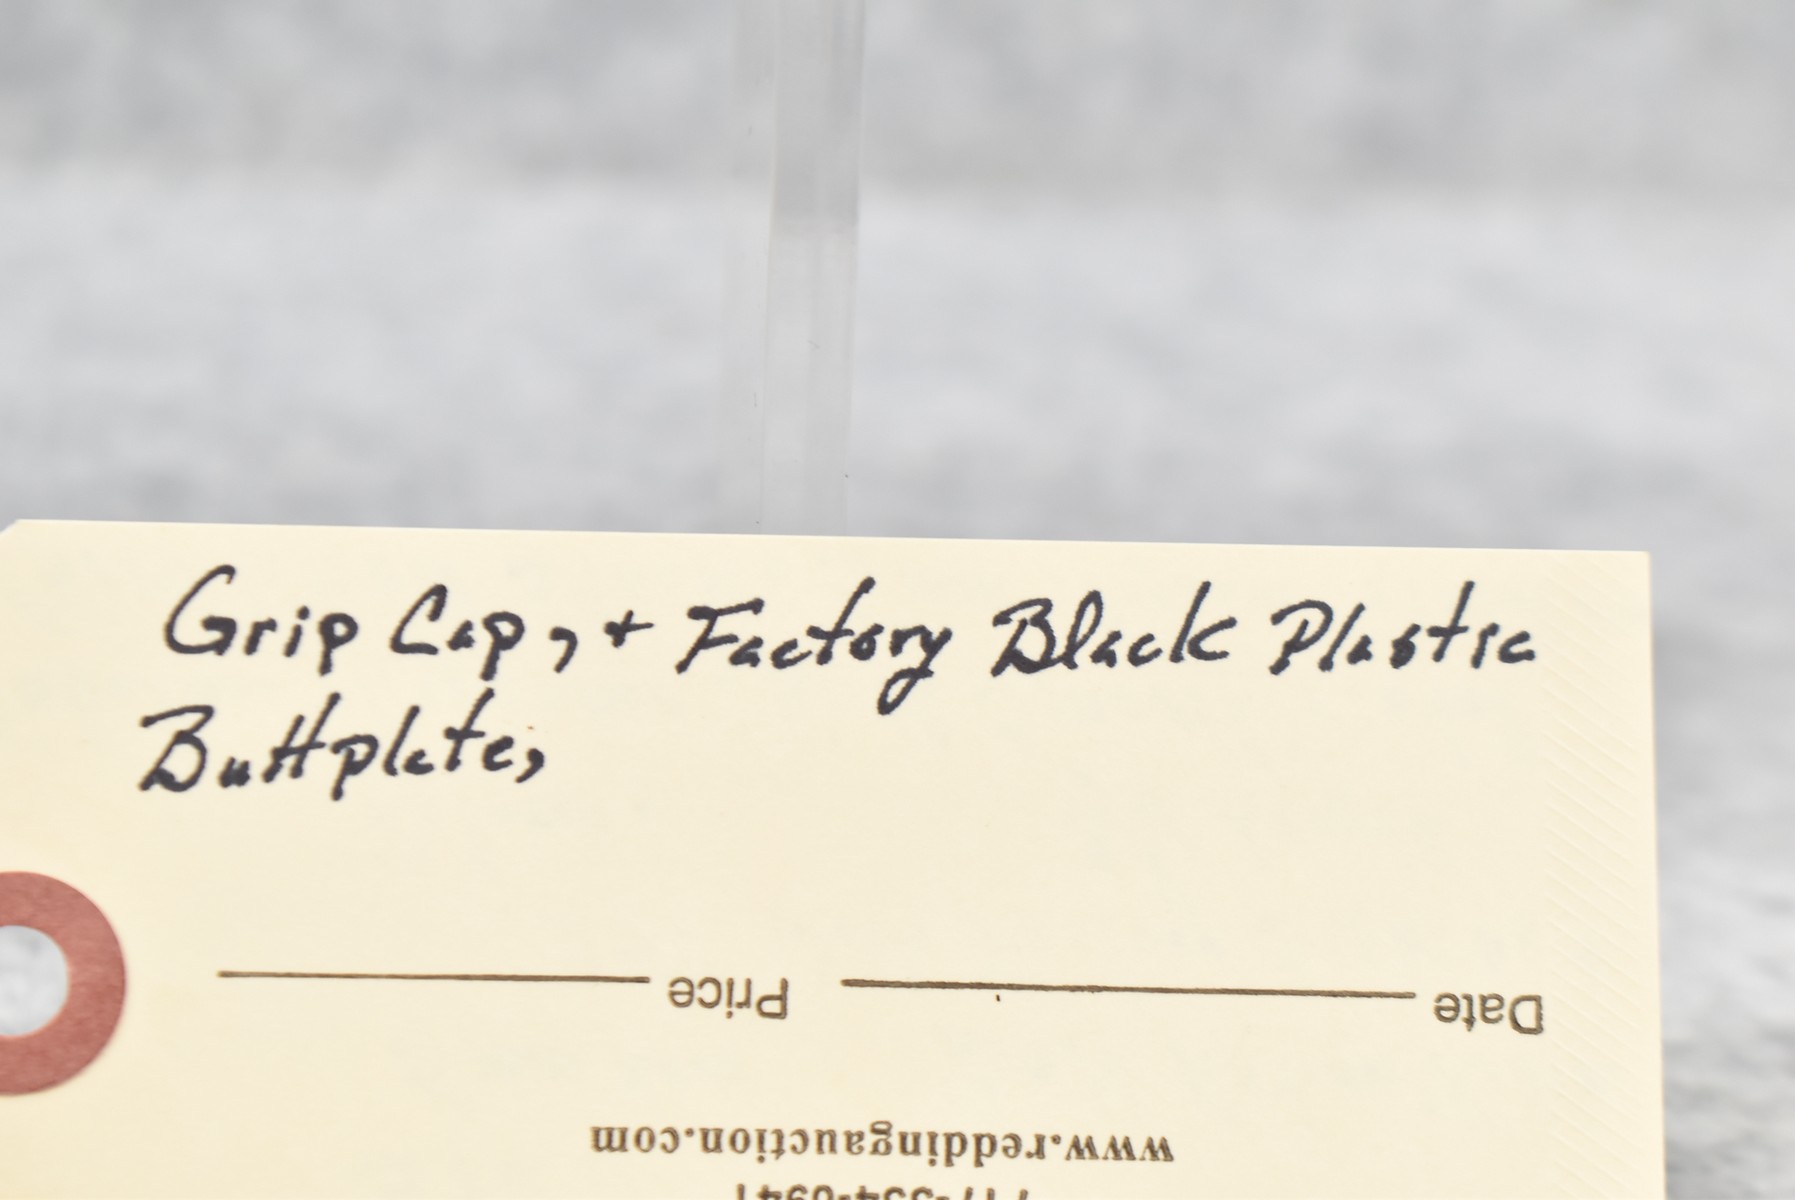 Grip Cap, + Factory Black Plastic
Buttplate,
Date Price
www.reddingauction.com